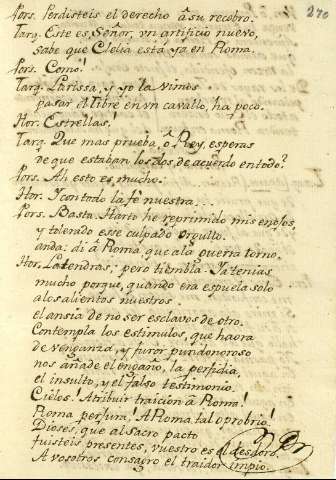 270
Pors. Perdisteis el derecho â su recobro.
Tarq. Este es, Señor, vn artificio nuevo,
sabe que Clelia està ya en Roma.
Pors. Como!
Tarq. Larissa, y yo la vimos
pasar Al Tibre en vn cavallo, ha poco.
Hor. Estrellas!
Tarq. Que mas prueba, ô Rey, esperas
de que estaban los dos de acuerdo en todo?
Pors. Ah esto es mucho.
Hor. Y con todo la fè nuestra...
Pors. Basta. Harto he reprimido mis enojos,
y tolerado ese culpado orgullo.
anda: di â Roma, que a la guerra torno.
Hor. La tendras; pero tiembla. Ya tenias
mucho porque, quando era espuela solo
a los alientos nuestros
el ansia de no ser esclavos de otro.
Contempla los estimulos, que haora
de venganza, y furor pundonoroso
nos añade el engaño, la perfidia,
el insulto, y el falso testimonio.
Cielos! Atribuir traicion â Roma!
Roma perjura! A Roma tal oprobrio!
Dioses, que al Sacro pacto
fuisteis presentes, vuestro es el desdoro.
A vosotros consagro el traidor impio.